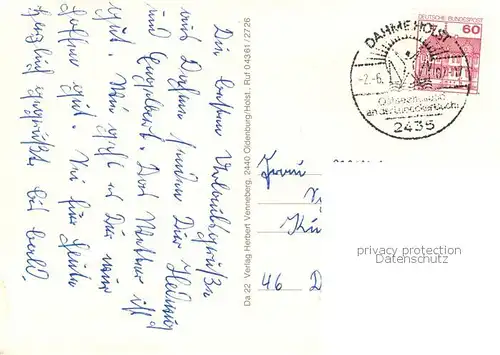 Die besten Urlaubsgrüße
aus Dahme senden Dir Hedwig
und Engelbert. Das Wetter ist
gut. Wie geht es Dir wir
hoffen gut. Bis für heute
herzlich gegrüßt bis bald.
Da 22 Verlag Herbert Venneberg, 2440 Oldenburg/Holst., Ruf 04361/2726
DEUTSCHE BUNDESPOST
60
DAHME HOLST
-2.-6.
Ostseeheilbad
an der Lübecker Bucht
2435
Frau
46 D
privacy protection
Datenschutz